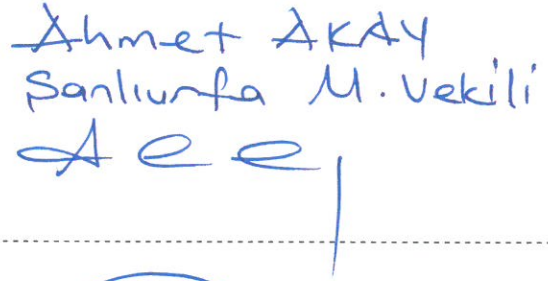 Ahmet AKAY
Şanlıurfa M. Vekili